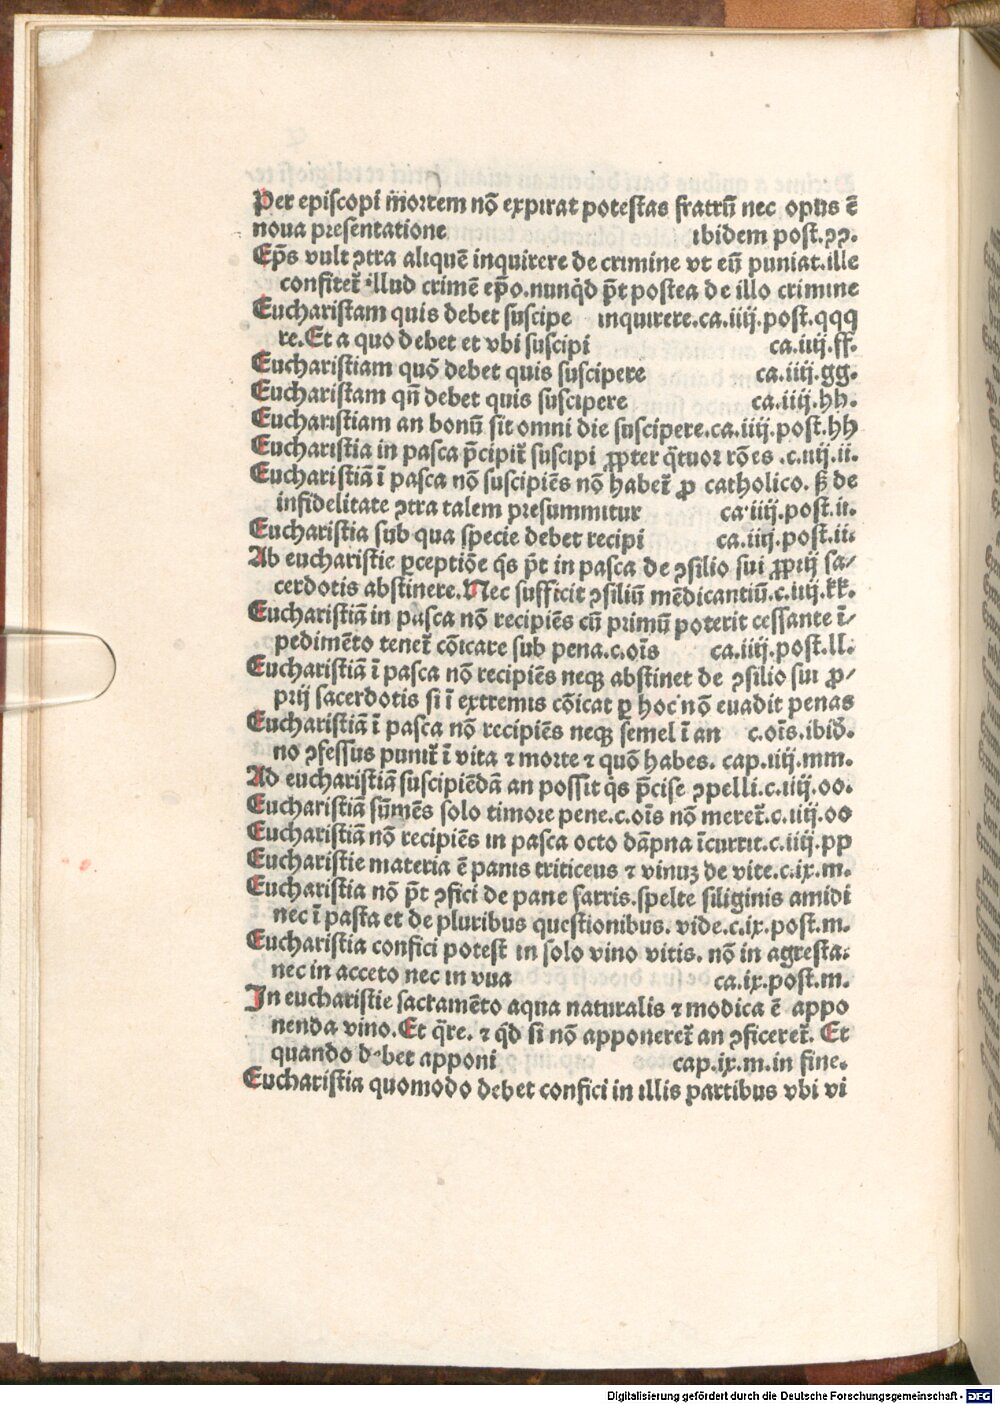 Per episcopi mortem nō expirat potestas fratrū nec opus ē
noua presentatione ibidem post.ꝯꝯ.
Ep̄s vult ꝯtra aliquē inquirere de crimine vt eū puniat.ille
confiteť illud crimē ep̄o.nunqď p̄t postea de illo crimine
Eucharistam quis debet suscipe inquirere.ca.iiij.post.qqq
re.Et a quo debet et vbi suscipi ca.iiij.ff.
Eucharistiam quō debet quis suscipere ca.iiij.gg.
Eucharistam qn̄ debet quis suscipere ca.iiij.hh.
Eucharistiam an bonū sit omni die suscipere.ca.iiij.post.hh
Eucharistia in pasca p̄cipiť suscipi ꝓpter q̄tuor rōes .c.iiij.ii.
Eucharistiā ī pasca nō suscipiēs nō habeť ꝓ catholico. ß de
infidelitate ꝯtra talem presummitur ca.iiij.post.ii.
Eucharistia sub qua specie debet recipi ca.iiij.post.ii.
Ab eucharistie ꝑceptiōe q̄s p̄t in pasca de ꝯsilio sui ꝓprij sa⸗
cerdotis abstinere.Nec sufficit ꝯsiliū mēdicantiū.c.iiij.kk.
Eucharistiā in pasca nō recipiēs cū primū poterit cessante ī⸗
pedimēto teneť cōicare sub pena.c.oīs ca.iiij.post.ll.
Eucharistiā ī pasca nō recipiēs neqꝫ abstinet de ꝯsilio sui ꝓ⸗
prij sacerdotis si ī extremis cōicat ꝑ hoc nō euadit penas
Eucharistiā ī pasca nō recipiēs neqꝫ semel ī an c.oīs.ibiď.
no ꝯfessus puniť ī vita ⁊ morte ⁊ quō habes. cap.iiij.mm.
Ad eucharistiā suscipiēdā an possit q̄s p̄cise ꝯpelli.c.iiij.oo.
Eucharistiā sūmēs solo timore pene.c.oīs nō mereť.c.iiij.oo
Eucharistiā nō recipiēs in pasca octo dāpna īcurrit.c.iiij.pp
Eucharistie materia ē panis triticeus ⁊ vinuꝫ de vite.c.ix.m.
Eucharistia nō p̄t ꝯfici de pane farris.spelte siliginis amidi
nec ī pasta et de pluribus questionibus. vide.c.ix.post.m.
Eucharistia confici potest in solo vino vitis. nō in agresta.
nec in acceto nec in vua ca.ix.post.m.
In eucharistie sacramēto aqua naturalis ⁊ modica ē appo
nenda vino.Et q̄re. ⁊ qď si nō apponereť an ꝯficereť. Et
quando debet apponi cap.ix.m.in fine.
Eucharistia quomodo debet confici in illis partibus vbi vi
Digitalisierung gefördert durch die Deutsche Forschungsgemeinschaft - DFG